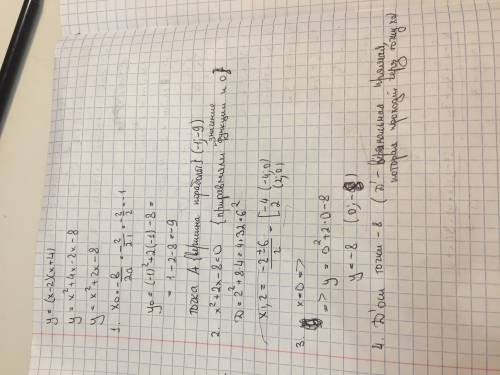 y = (x-2)(x+4)
y = x² + 4x - 2x - 8
y = x² + 2x - 8
1. x₀ = -в/2a = -2/2·1 = -2/2 = -1
y₀ = (-1)² + 2(-1) - 8 =
= 1 - 2 - 8 = -9
точка А {вершина параболы} (-1; -9)
2. x² + 2x - 8 = 0 {приравняли значение функции к 0}
D = 2² + 8·4 = 4 + 32 = 6²
x₁,₂ = (-2 ± 6)/2 = [ -4 (-4; 0)
2 (2; 0)
3. x = 0 =>
=> y = 0² + 2·0 - 8
y = -8 (0; -8)
4. D' оси точки - 8 (D' - прямая,
которая проходит через точку